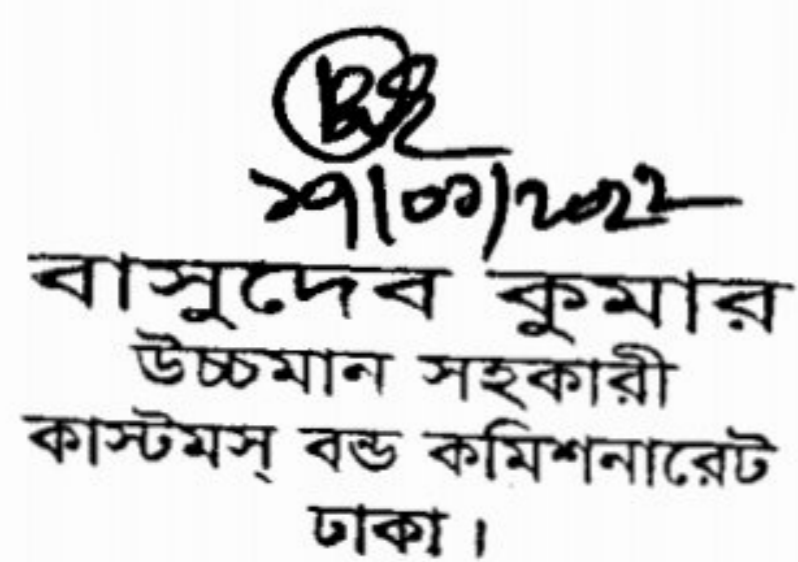 ১৭/০১/২০২২
বাসুদেব কুমার
উচ্চমান সহকারী
কাস্টমস্ বন্ড কমিশনারেট
ঢাকা।